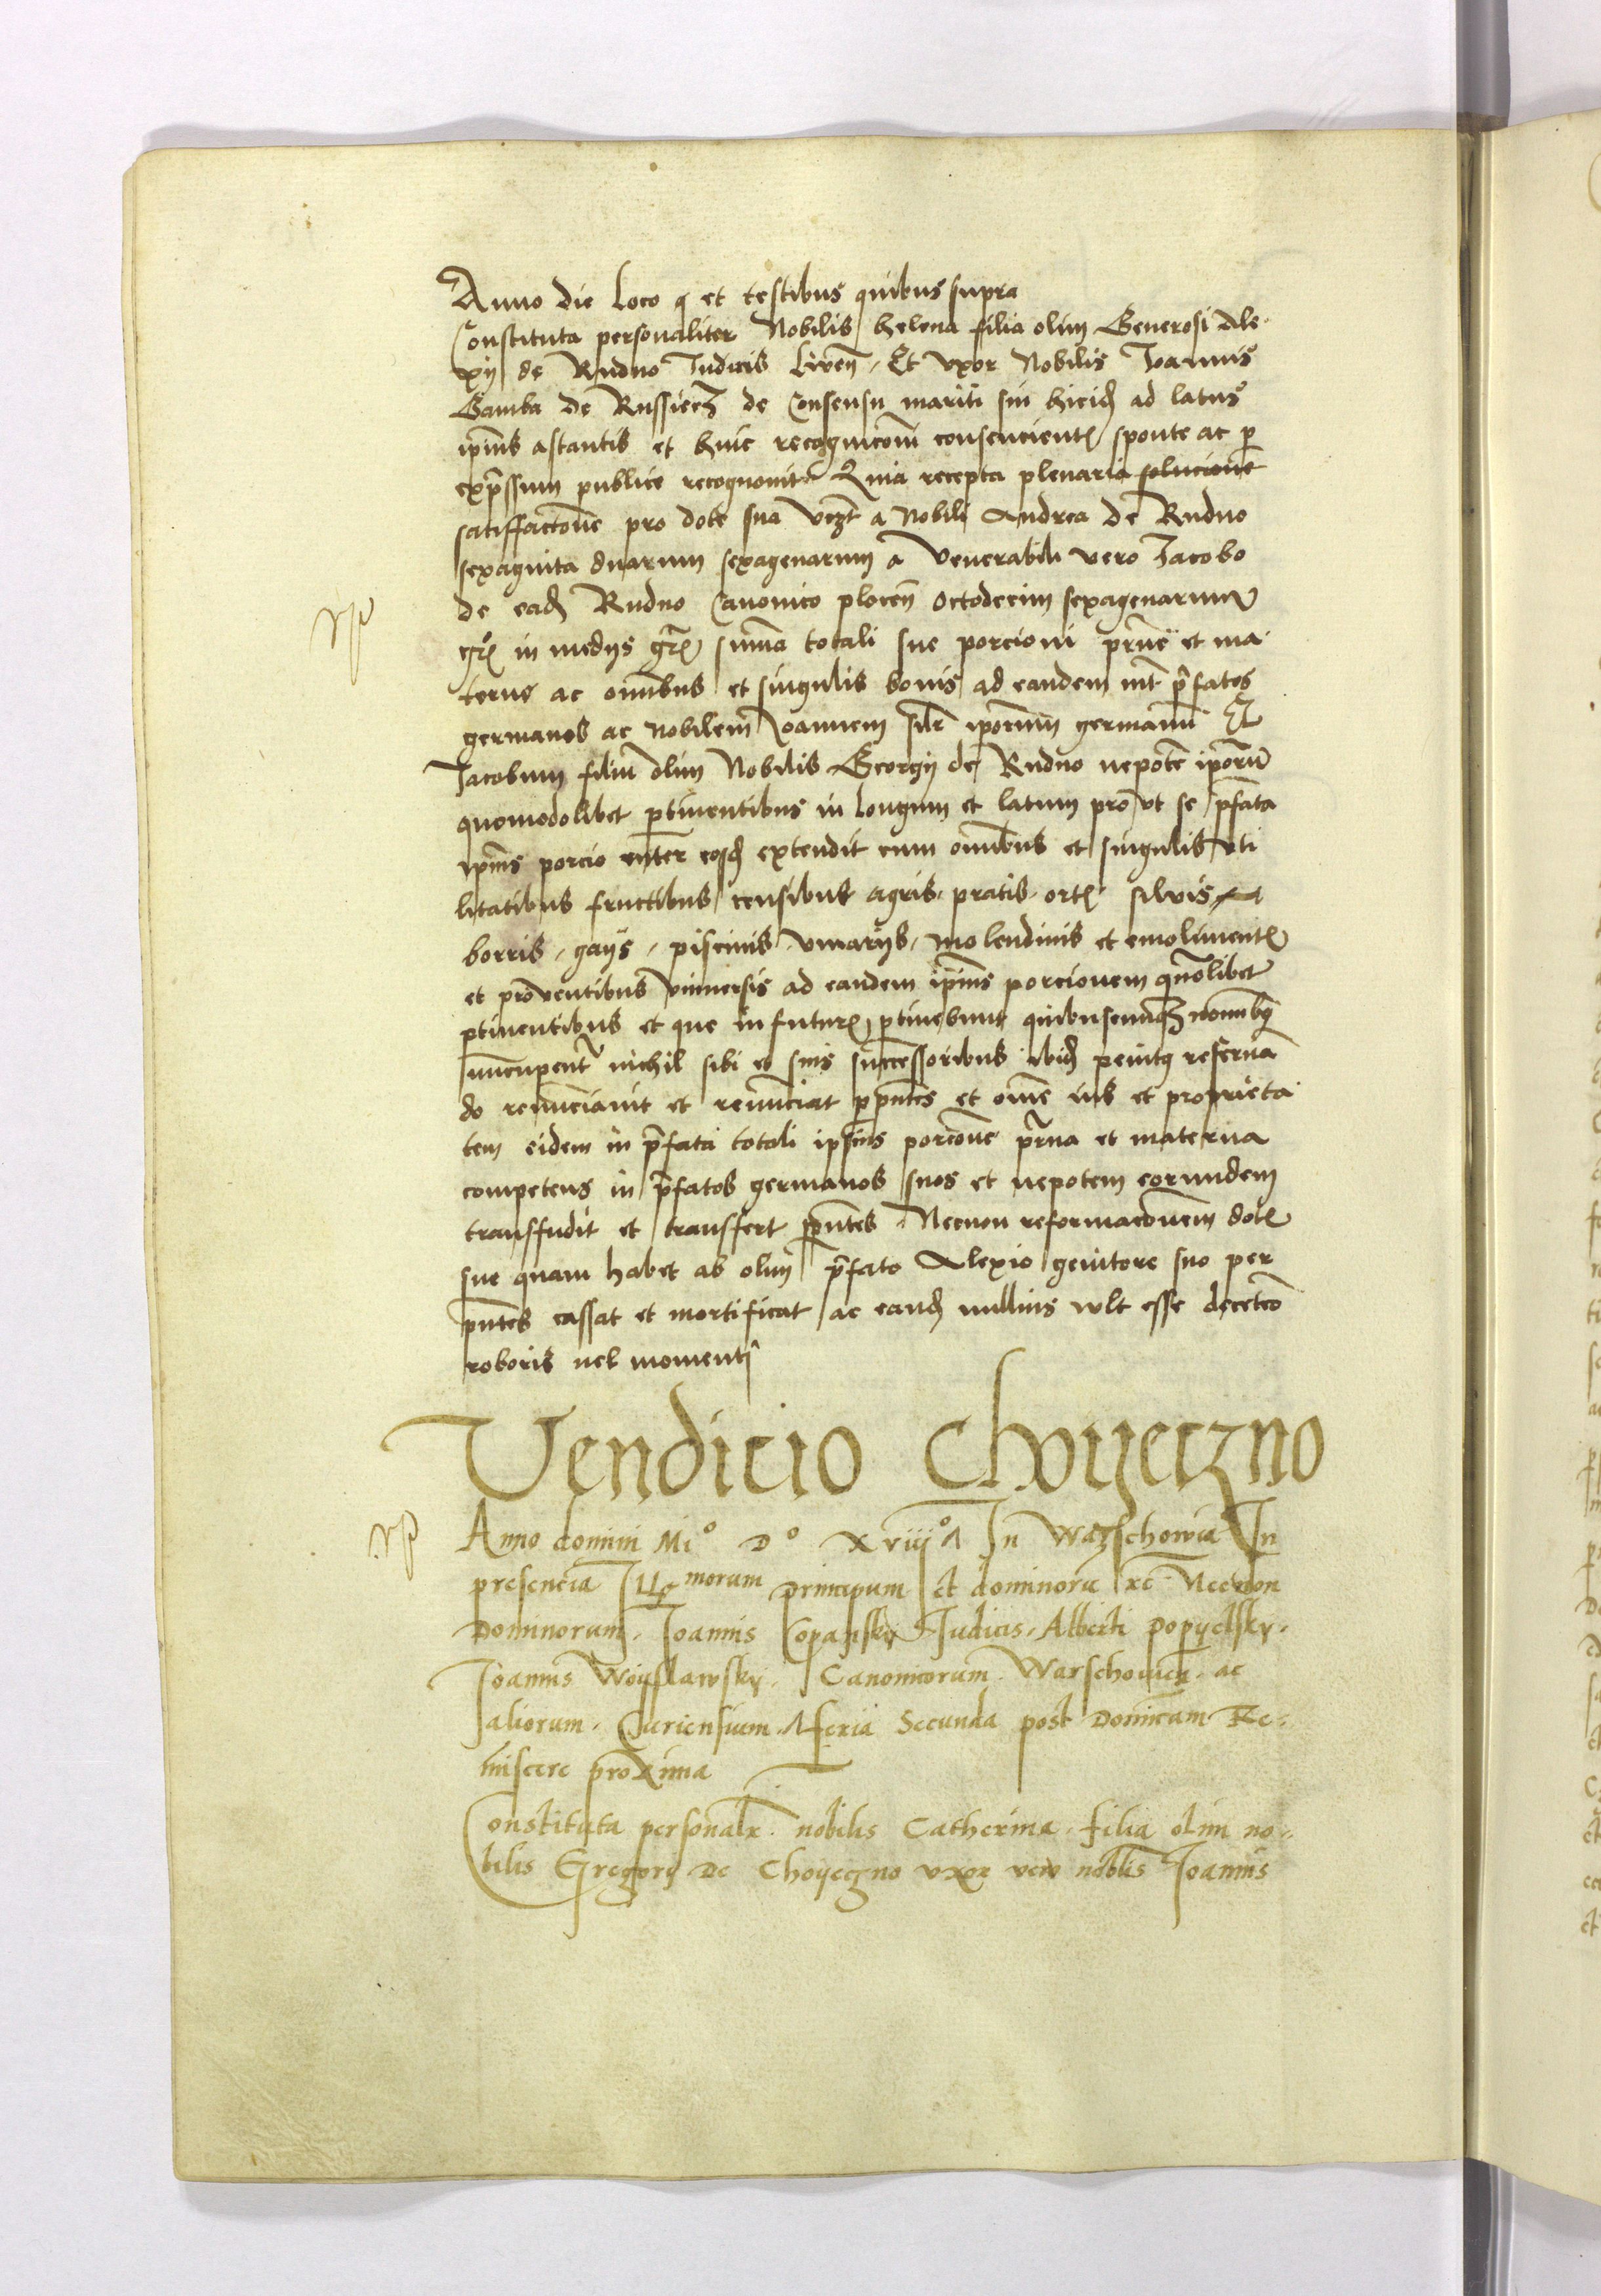 Anno die loco q et testibus quibus supra
Constituta personaliter Nobilis helena filia olim Generosi Ale-
xy de Rudno Iudicis Liven, Et vxor Nobilis Joannis
Gamba de Russiecz de Consensu mariti sui hicid ad latus
ipius astantis et huic recognicom consencient sponte ac p
expssum publice recognouit Quia recepta plenaria solucione
satisfactoue pro dote sua vczt a Nobili Andrea de Rudno
sexaginta duarum sexagenarum a Venerabili vero Jacobo
de ead Rudno Canonico plocen octodecim sexagenarum
gr in medys gr suma totali sue porcioni prne et ma-
terne ac omibus et singulis bonis ad eandem int pfatos
germanos ac Nobilem Joannem silr iporum germanu Et
Jacobum filiu olim Nobilis Georgy de Rudno nepote iporu
quomodolibet ptinentibus in longum et latum pro vt se pfata
ipius porcio inter eosd extendit cum omibus et singulis vti
litatibus fructibus censibus agris, pratis, ort siluis
borris, gays, piscinis, vinarys, molendinis et emoliment
et prouentibus vniuersis ad eandem ipius porcionem qmolibet
ptinentibus et que in futur ptinebunt quibuscumqz nominibq
nuncupent nichil sibi et suis successoribus ibid penitq reserua
do renunciauit et renunciat ppntes et ome ius et proprieta-
tem eidem in pfata totali ipsius porcone prna et materna
competens in pfatos germanos suos et nepotem eorundem
transfudit et transfert ppntes Necnon reformaconem dot
sue quam habet ab olim pfato Alexio genitore suo per
pntes cassat et mortificat ac eand nullius vlt esse decetero
roboris uel momenti
Vendicio Choyeczno
Anno domini Mio Do xviiio In Warschowia In
presencia Illmorum principum et dominoru xc Necnon
Dominorum, Joannis Copansky Judicis, Alberti popyelsky,
Joannis Woyslawsky, Canonicorum Warschouien, ac
aliorum, Curiensium feria Secunda post Dominicam Re-
miscere proxima
Constituta personalr nobilis Catherina, filia olim no-
bilis Gregory De Choyeczno vxor vero nobilis Joannis